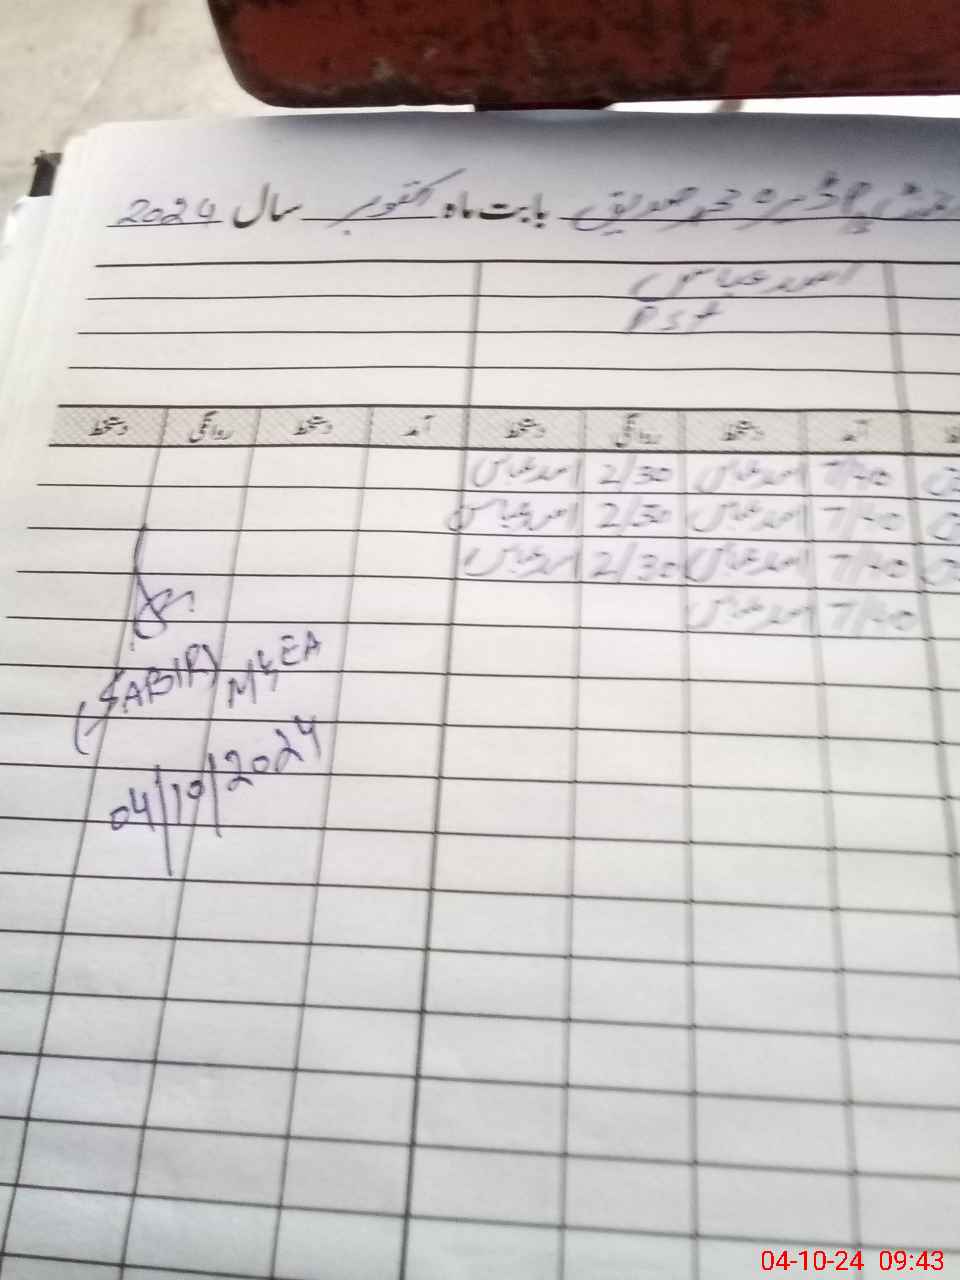 بابت ماہ اکتوبر سال 2024
اسد عباس
PST
آمد دستخط روانگی دستخط آمد دستخط روانگی دستخط
7/40 اسد عباس 2/30 اسد عباس
7/40 اسد عباس 2/30 اسد عباس
7/40 اسد عباس 2/30 اسد عباس
7/40 اسد عباس
(SABIR)
M&EA
04/10/2024
04-10-24 09:43